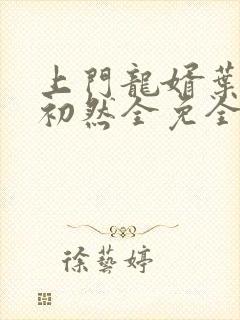 上門龍婿葉
初然全免全
徐藝婷